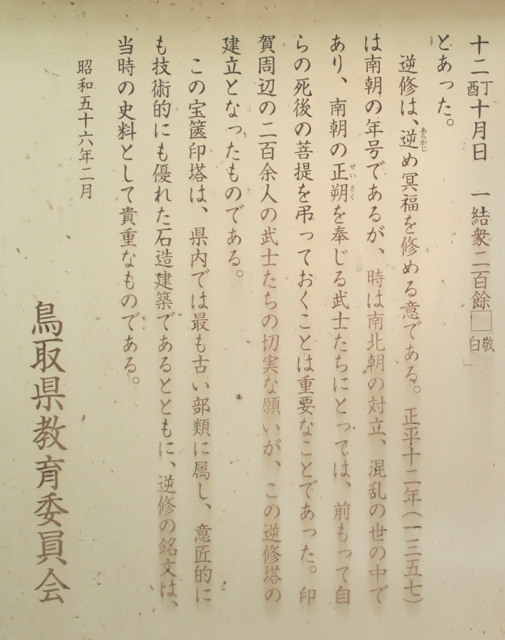 十二丁酉十月日　一結衆二百餘□敬白」
とあった。
逆修は、逆め冥福を修める意である。正平十二年（一三五七）
は南朝の年号であるが、時は南北朝の対立、混乱の世の中で
あり、南朝の正朔を奉じる武士たちにとっては、前もって自
らの死後の菩提を弔っておくことは重要なことであった。印
賀周辺の二百余人の武士たちの切実な願いが、この逆修塔の
建立となったものである。
この宝篋印塔は、県内では最も古い部類に属し、意匠的に
も技術的にも優れた石造建築であるとともに、逆修の銘文は、
当時の史料として貴重なものである。
昭和五十六年二月
鳥取県教育委員会